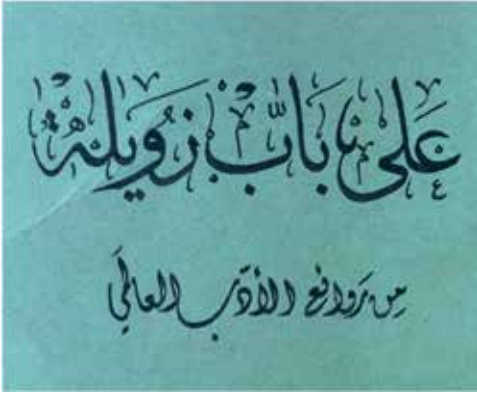 عَلى بَابْ زُوَيلَة
مِن رَوائع الأدَب العالَمي